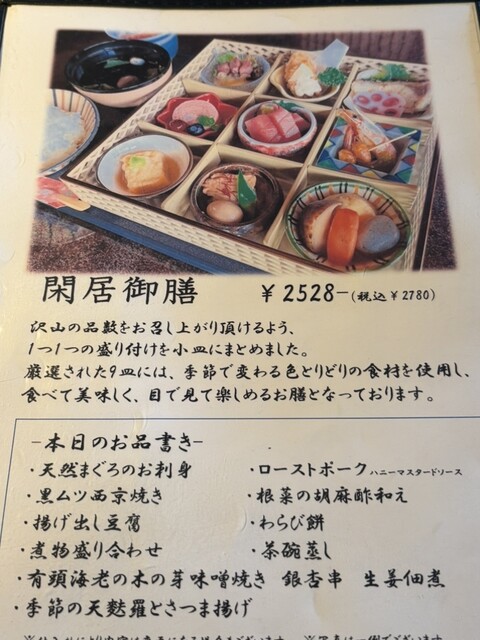 閑居御膳 ¥2528-(税込¥2780)
沢山の品数をお召し上がり頂けるよう、
1つ1つの盛り付けを小皿にまとめました。
厳選された9皿には、季節で変わる色とりどりの食材を使用し、
食べて美味しく、目で見て楽しめるお膳となっております。
-本日のお品書き-
・天然まぐろのお刺身 ・ローストポーク ハニーマスタードソース
・黒ムツ西京焼き ・根菜の胡麻酢和え
・揚げ出し豆腐 ・わらび餅
・煮物盛り合わせ ・茶碗蒸し
・有頭海老の木の芽味噌焼き 銀杏串 生姜佃煮
・季節の天麩羅とさつま揚げ